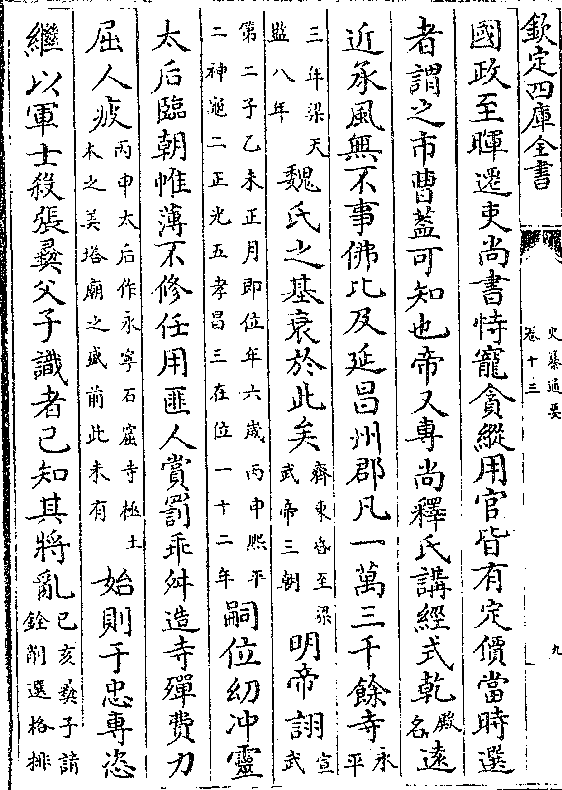 欽定四庫全書
史纂通要
卷十三
九
國政至暉遷吏尚書恃寵貪縱用官皆有定價當時選
者謂之市曹蓋可知也帝又專尚釋氏講經式乾殿名遠
近承風無不事佛比及延昌州郡凡一萬三千餘寺永平
三年梁天
監八年
魏氏之基衰於此矣
齊東昏至梁
武帝三朝
明帝詡
宣武
第二子乙未正月即位年六歲丙申熙平
二神龜二正光五孝昌三在位一十二年
嗣位幼冲靈
太后臨朝帷薄不修任用匪人賞罰乖舛造寺殫費力
屈人疲
丙申太后作永寧石窟寺極土
木之美塔廟之盛前此未有
始則于忠專恣
繼以軍士殺張彞父子識者已知其將亂
己亥彞子請
銓削選格排